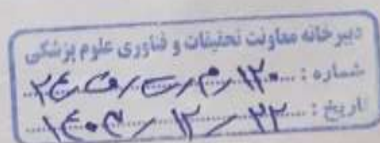 دبیرخانه معاونت تحقیقات و فناوری علوم پزشکی
شماره : ۱۲۰/م/
تاریخ : ۲۲ / ۱۲ / ۱۴۰۳